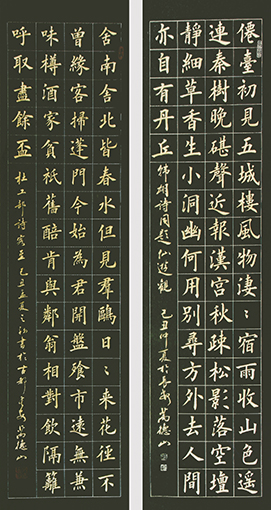 僊臺初見五城樓風物淒〻宿雨收山色遥
連秦樹晚碪聲近報漢宮秋疎松影落空壇
靜細草香生小洞幽何用別尋方外去人間
亦自有丹丘 韓翃詩同題仙遊觀 己丑仲夏於長安
舍南舍北皆春水但見羣鷗日〻來花徑不
曾緣客掃蓬門今始為君開盤飧市遠無兼
味樽酒家貧秖舊醅肯與鄰翁相對飲隔籬
呼取盡餘盃 杜工部詩客至 己丑孟夏 書於古都長安